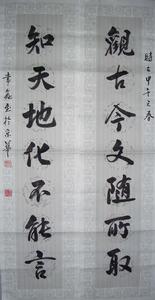 時在甲午之春
觀古今文随所取
知天地化不能言
於京華